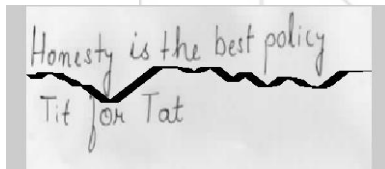 Honesty is the best policy
Tit for Tat